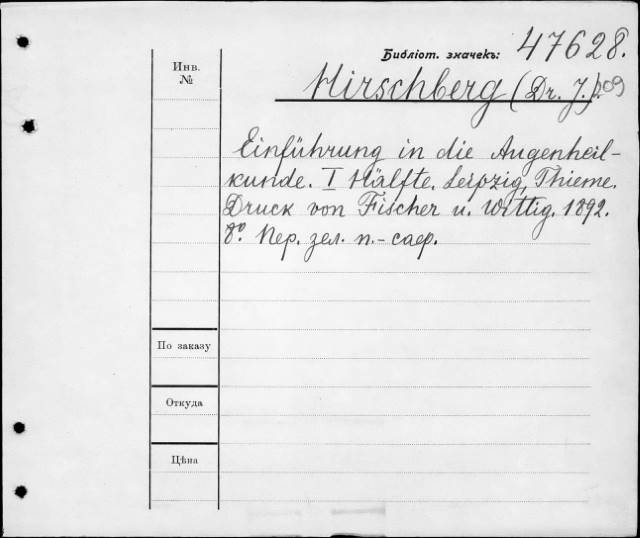 Библіот. значекъ: 47628.
Инв. №
Hirschberg (Dr. J.). 209
Einführung in die Augenheil-
kunde. I Hälfte. Leipzig, Thieme.
Druck von Fischer u. Wittig. 1892.
8º. Пер. зел. п.-саф.
По заказу
Откуда
Цѣна